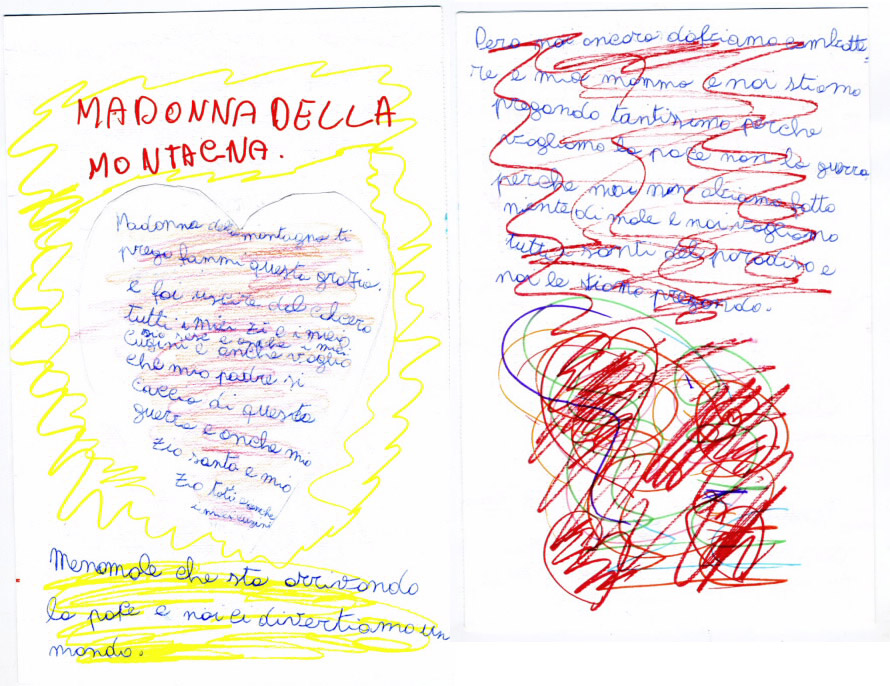 MADONNA DELLA
MONTAGNA.
Madonna della montagna ti
prego fammi questa grazia.
e fai uscire dal carcero
tutti i miei zi e i miei
zio e anche i miei
cugini e anche voglio
che mio padre si
caccia di questa
guerra e anche mio
zio santo e mio
zio toti e anche
i miei cugini
Menomale che sta arrivando
la pace e noi ci divertiamo un
mondo.
Pero noi ancora dobiamo combatte-
re e mia mamma e noi stiamo
pregando tantissimo perche
vogliamo la pace non la guerra
perche noi non abiamo fatto
niente di male e noi vogliamo
tutti i santi del paradiso e
noi le stiamo pregando.